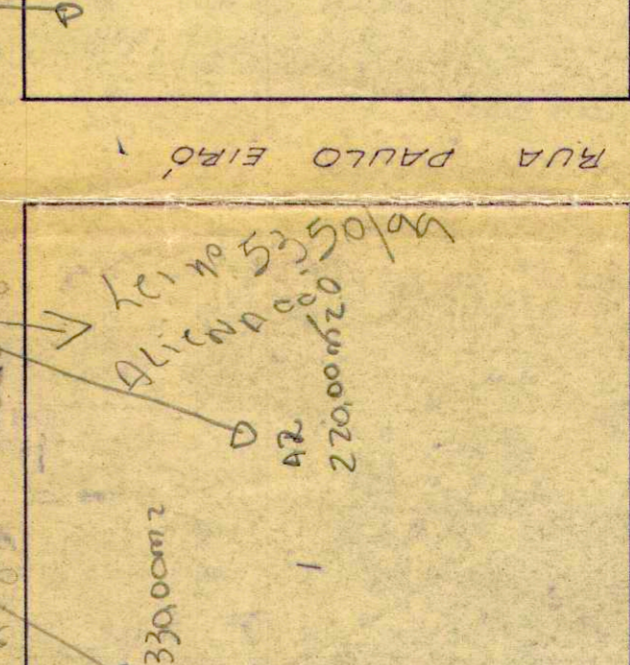 RUA PAULO EIRÓ
Lei nº 5350/99
ALIENAÇÃO
42
220,00m2
330,00m2